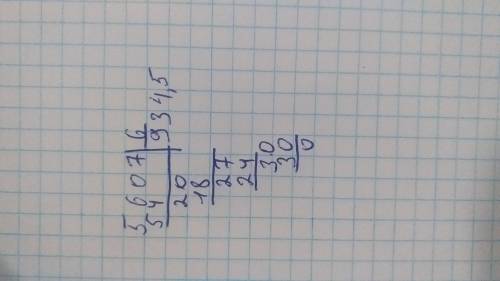 5607 6
54 934,5
20
18
27
24
30
30
0